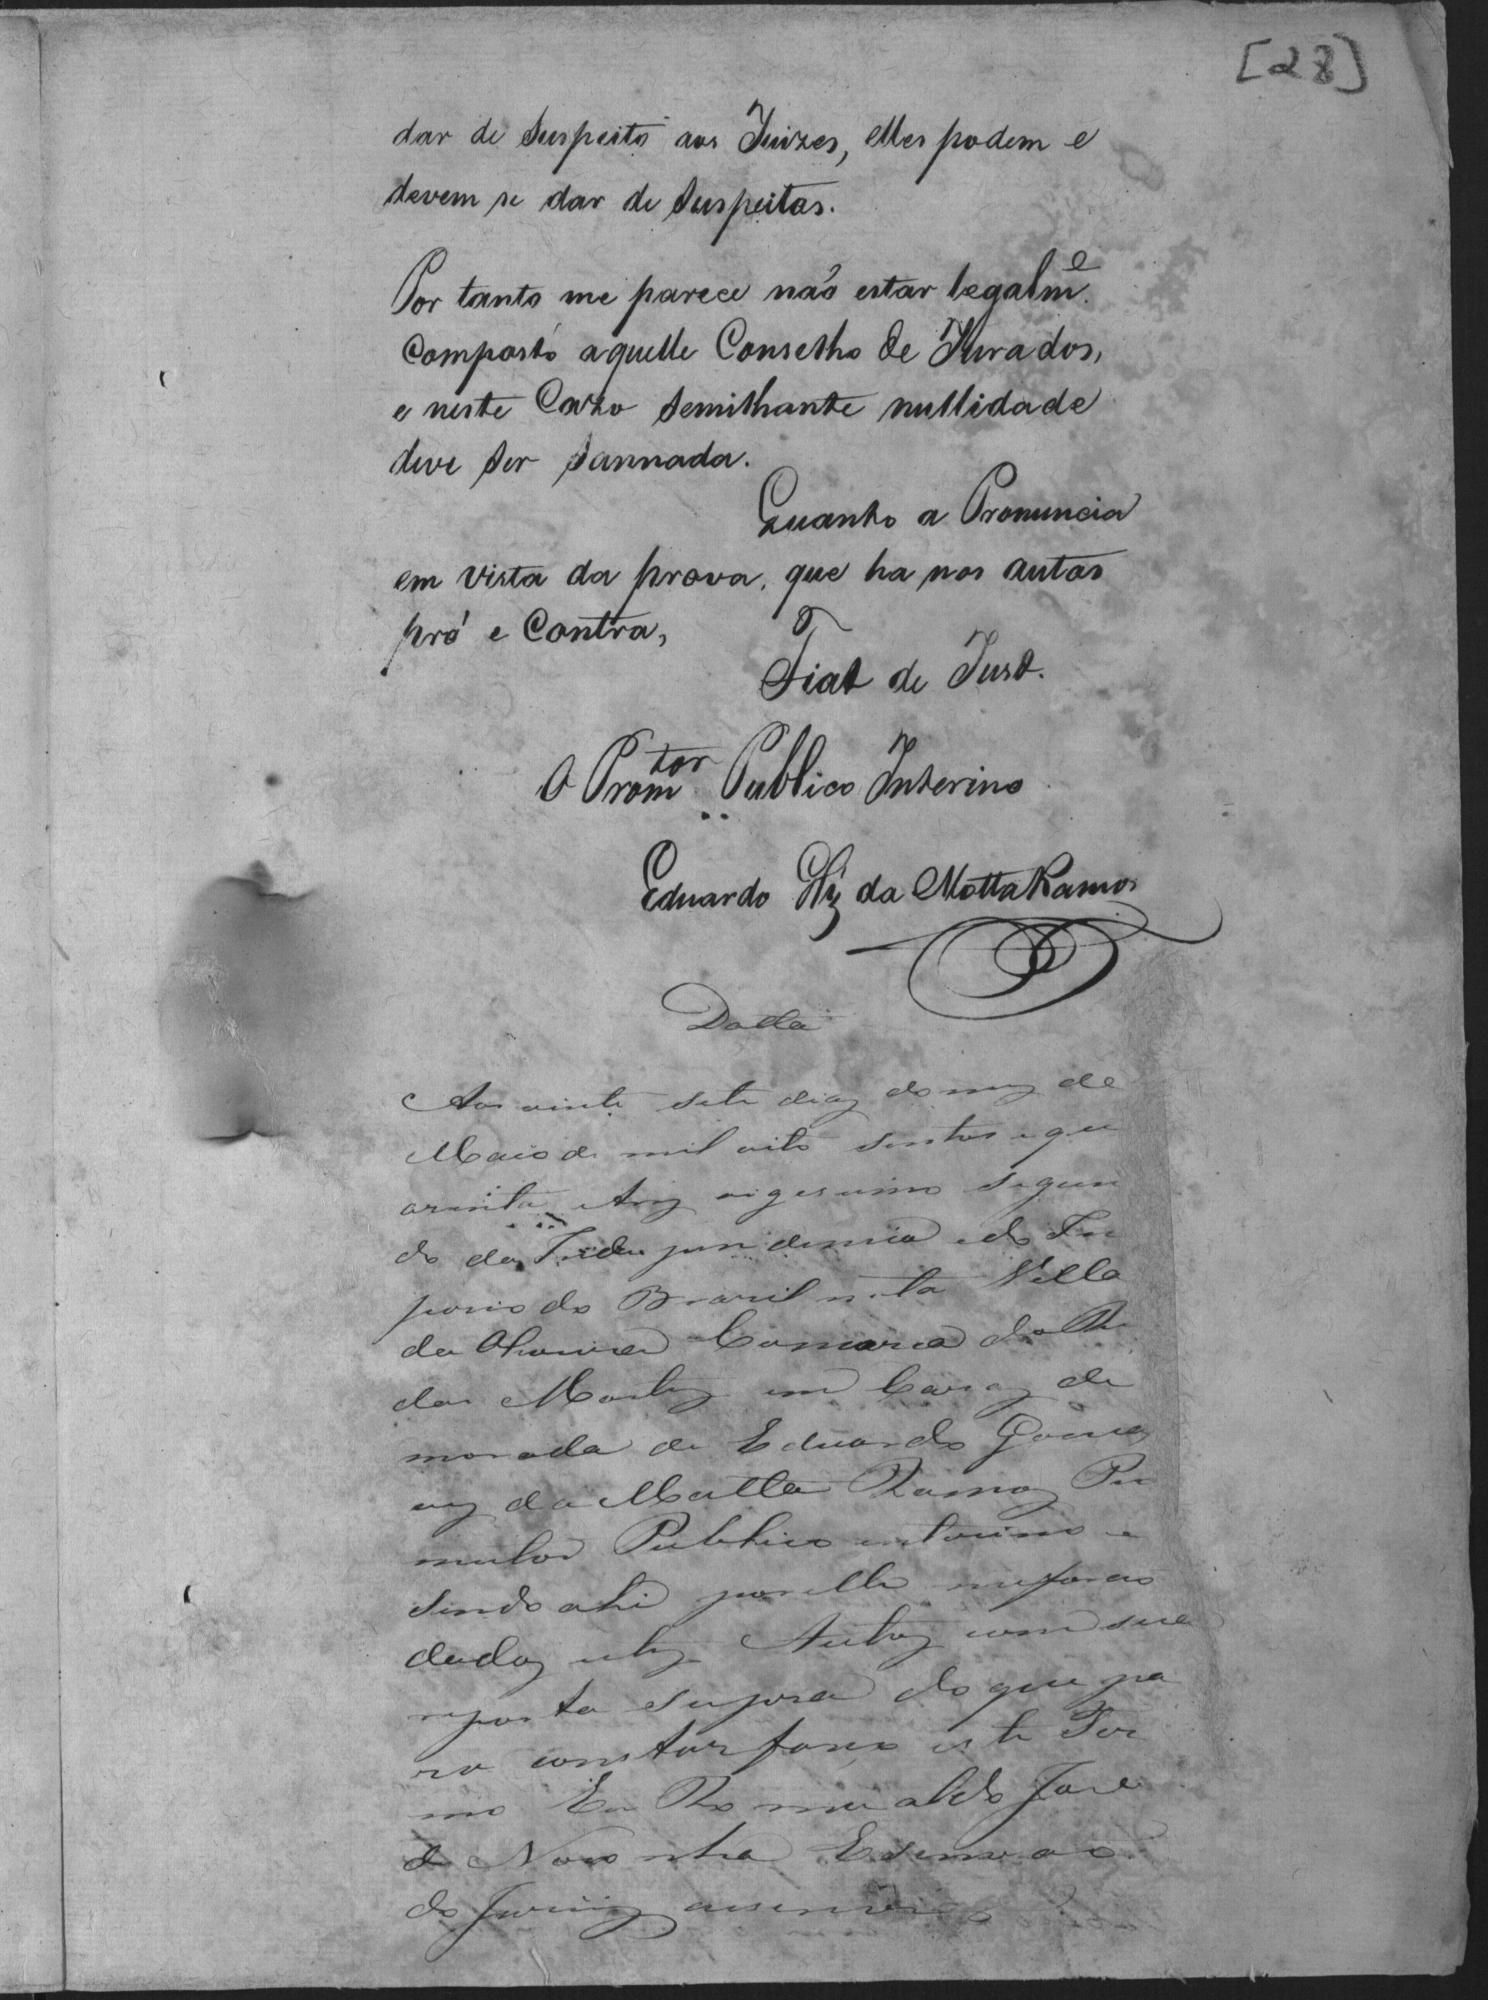 [28]
dar de suspeito aos Juizes, elles podem e
devem se dar de suspeitos.
Por tanto me parece não estar legalmᵉ.
composto aquelle Conselho de Jurados,
e neste Cazo semilhante nullidade
deve ser sannada.
Quanto a Pronuncia
em vista da prova, que ha nos autos
pró e Contra,
Fiat de Just.
O Promᵗᵒʳ Publico Interino
Eduardo Glz da Motta Ramos
Datta
Aos vinte sete dias do mez de
Maio de mil oito sentos e qua
arenta vigesimo segun
do da Independencia e do Im
perio do Brasil nesta Villa
da Comarca do R.
das Mortes em Casas de
morada de Eduardo Gonsa
ves da Motta Ramos Pro
mutor Publico intirino e
sendo ahi por elle me forão
dados estes Autos com sua
reposta supra do que pa
ra constar faço este Ter
mo Eu Romualdo Jose
de Noronha Escrivão
do Jury escrevi